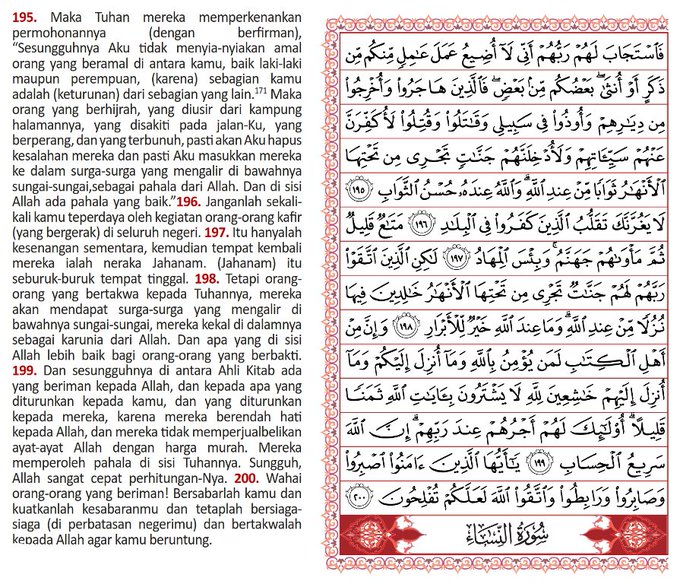 195. Maka Tuhan mereka memperkenankan
permohonannya (dengan berfirman),
“Sesungguhnya Aku tidak menyia-nyiakan amal
orang yang beramal di antara kamu, baik laki-laki
maupun perempuan, (karena) sebagian kamu
adalah (keturunan) dari sebagian yang lain.¹⁷¹ Maka
orang yang berhijrah, yang diusir dari kampung
halamannya, yang disakiti pada jalan-Ku, yang
berperang, dan yang terbunuh, pasti akan Aku hapus
kesalahan mereka dan pasti Aku masukkan mereka
ke dalam surga-surga yang mengalir di bawahnya
sungai-sungai,sebagai pahala dari Allah. Dan di sisi
Allah ada pahala yang baik.”196. Janganlah sekali-
kali kamu teperdaya oleh kegiatan orang-orang kafir
(yang bergerak) di seluruh negeri. 197. Itu hanyalah
kesenangan sementara, kemudian tempat kembali
mereka ialah neraka Jahanam. (Jahanam) itu
seburuk-buruk tempat tinggal. 198. Tetapi orang-
orang yang bertakwa kepada Tuhannya, mereka
akan mendapat surga-surga yang mengalir di
bawahnya sungai-sungai, mereka kekal di dalamnya
sebagai karunia dari Allah. Dan apa yang di sisi
Allah lebih baik bagi orang-orang yang berbakti.
199. Dan sesungguhnya di antara Ahli Kitab ada
yang beriman kepada Allah, dan kepada apa yang
diturunkan kepada kamu, dan yang diturunkan
kepada mereka, karena mereka berendah hati
kepada Allah, dan mereka tidak memperjualbelikan
ayat-ayat Allah dengan harga murah. Mereka
memperoleh pahala di sisi Tuhannya. Sungguh,
Allah sangat cepat perhitungan-Nya. 200. Wahai
orang-orang yang beriman! Bersabarlah kamu dan
kuatkanlah kesabaranmu dan tetaplah bersiaga-
siaga (di perbatasan negerimu) dan bertakwalah
kepada Allah agar kamu beruntung.
فَٱسْتَجَابَ لَهُمْ رَبُّهُمْ أَنِّي لَآ أُضِيعُ عَمَلَ عَٰمِلٍ مِّنكُم مِّن
ذَكَرٍ أَوْ أُنثَىٰۖ بَعْضُكُم مِّنۢ بَعْضٖۖ فَٱلَّذِينَ هَاجَرُوا۟ وَأُخْرِجُوا۟
مِن دِيَٰرِهِمْ وَأُوذُوا۟ فِي سَبِيلِي وَقَٰتَلُوا۟ وَقُتِلُوا۟ لَأُكَفِّرَنَّ
عَنْهُمْ سَيِّـَٔاتِهِمْ وَلَأُدْخِلَنَّهُمْ جَنَّٰتٍ تَجْرِي مِن تَحْتِهَا
ٱلْأَنْهَٰرُ ثَوَابًا مِّنْ عِندِ ٱللَّهِۗ وَٱللَّهُ عِندَهُۥ حُسْنُ ٱلثَّوَابِ ١٩٥
لَا يَغُرَّنَّكَ تَقَلُّبُ ٱلَّذِينَ كَفَرُوا۟ فِي ٱلْبِلَٰدِ ١٩٦ مَتَٰعٌ قَلِيلٌ
ثُمَّ مَأْوَىٰهُمْ جَهَنَّمُۚ وَبِئْسَ ٱلْمِهَادُ ١٩٧ لَٰكِنِ ٱلَّذِينَ ٱتَّقَوْا۟
رَبَّهُمْ لَهُمْ جَنَّٰتٌ تَجْرِي مِن تَحْتِهَا ٱلْأَنْهَٰرُ خَٰلِدِينَ فِيهَا
نُزُلًا مِّنْ عِندِ ٱللَّهِۗ وَمَا عِندَ ٱللَّهِ خَيْرٌ لِّلْأَبْرَارِ ١٩٨ وَإِنَّ مِنْ
أَهْلِ ٱلْكِتَٰبِ لَمَن يُؤْمِنُ بِٱللَّهِ وَمَآ أُنزِلَ إِلَيْكُمْ وَمَآ
أُنزِلَ إِلَيْهِمْ خَٰشِعِينَ لِلَّهِ لَا يَشْتَرُونَ بِـَٔايَٰتِ ٱللَّهِ ثَمَنًا
قَلِيلًاۗ أُو۟لَٰٓئِكَ لَهُمْ أَجْرُهُمْ عِندَ رَبِّهِمْۗ إِنَّ ٱللَّهَ
سَرِيعُ ٱلْحِسَابِ ١٩٩ يَٰٓأَيُّهَا ٱلَّذِينَ ءَامَنُوا۟ ٱصْبِرُوا۟
وَصَابِرُوا۟ وَرَابِطُوا۟ وَٱتَّقُوا۟ ٱللَّهَ لَعَلَّكُمْ تُفْلِحُونَ ٢٠٠
سُورَةُ النِّسَاءِ